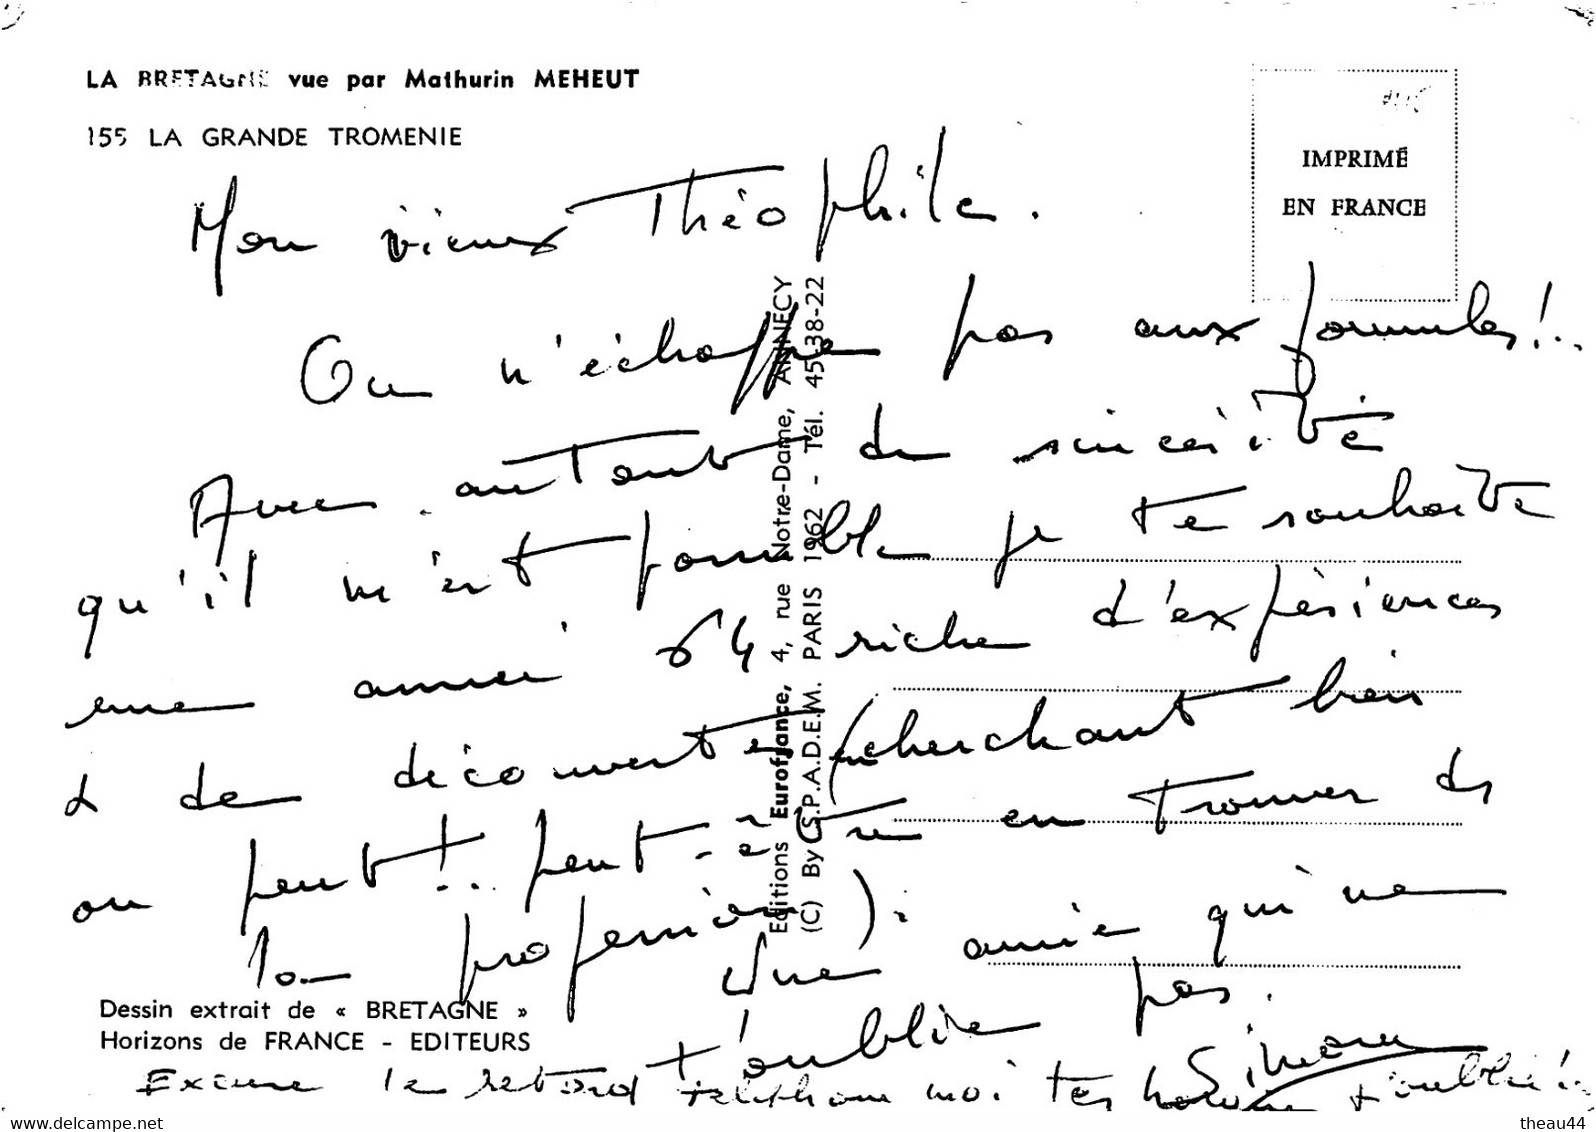 LA BRETAGNE vue par Mathurin MEHEUT
155 LA GRANDE TROMENIE
IMPRIMÉ
EN FRANCE
Mon vieux Théophile.
On n'échappe pas aux formules!..
Avec autant de sincérité
qu'il m'est possible je te souhaite
une année 64 riche d'expériences
& de découvertes (cherchant bien
on peut!.. peut-être en trouver ds
la profession). Une amie qui ne
t'oublie pas.
Simone
Excuse le retard téléphone moi tes
Editions Eurofrance, 4, rue Notre-Dame, ANNECY
(C) By S.P.A.D.E.M. PARIS 1962 - Tél. 45-38-22
Dessin extrait de « BRETAGNE »
Horizons de FRANCE - EDITEURS
www.delcampe.net
theau44